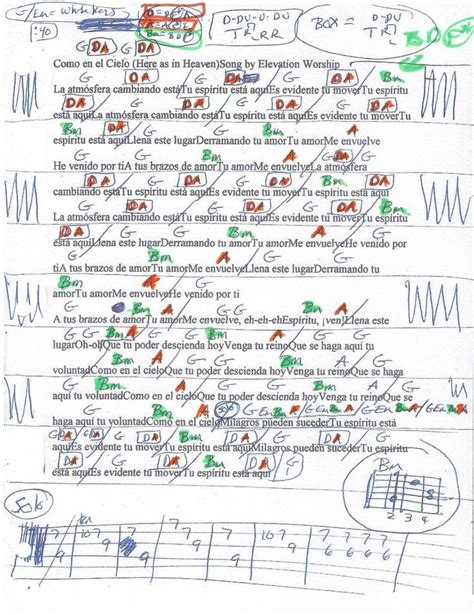 G/Em= Whiskers D=DEA D-DU-U-DU BOX = D-DU
1:40 A= Bm=BDE TRLRR TRL BDE
G DA G DA
Como en el Cielo (Here as in Heaven)Song by Elevation Worship
G DA G DA G Bm
La atmósfera cambiando estáTu espíritu está aquíEs evidente tu moverTu espíritu
DA G DA G DA G
está aquíLa atmósfera cambiando estáTu espíritu está aquíEs evidente tu moverTu
Bm G Bm A
espíritu está aquíLlena este lugarDerramando tu amorTu amorMe envuelve
G Bm A G
He venido por tiA tus brazos de amorTu amorMe envuelveLa atmósfera
DA G DA G Bm DA
cambiando estáTu espíritu está aquíEs evidente tu moverTu espíritu está aquí
G DA G DA G Bm
La atmósfera cambiando estáTu espíritu está aquíEs evidente tu moverTu espíritu
DA G Bm A G
está aquíLlena este lugarDerramando tu amorTu amorMe envuelveHe venido por
Bm A G
tiA tus brazos de amorTu amorMe envuelveLlena este lugarDerramando tu
Bm A G
amorTu amorMe envuelveHe venido por ti
Bm A G
A tus brazos de amorTu amorMe envuelve, eh-eh-ehEspíritu, ¡ven!Llena este
Bm A G
lugarOh-oh¡Que tu poder descienda hoyVenga tu reinoQue se haga aquí tu
Bm A G Bm A G
voluntadComo en el cieloQue tu poder descienda hoyVenga tu reinoQue se haga
Bm A G Bm A G
aquí tu voluntadComo en el cieloQue tu poder descienda hoyVenga tu reinoQue se
Bm A
haga aquí tu voluntadComo en el cieloMilagros pueden sucederTu espíritu está
G DA G Bm DA G DA
aquíEs evidente tu moverTu espíritu está aquíMilagros pueden sucederTu espíritu
DA G Bm DA G
está aquíEs evidente tu moverTu espíritu está aquí
Bm
2 3 4
Solo
7 10 7 7 7 7 7 10 7 7 7 7 7 7
9 9 9 9 9 9 7 6 6 6